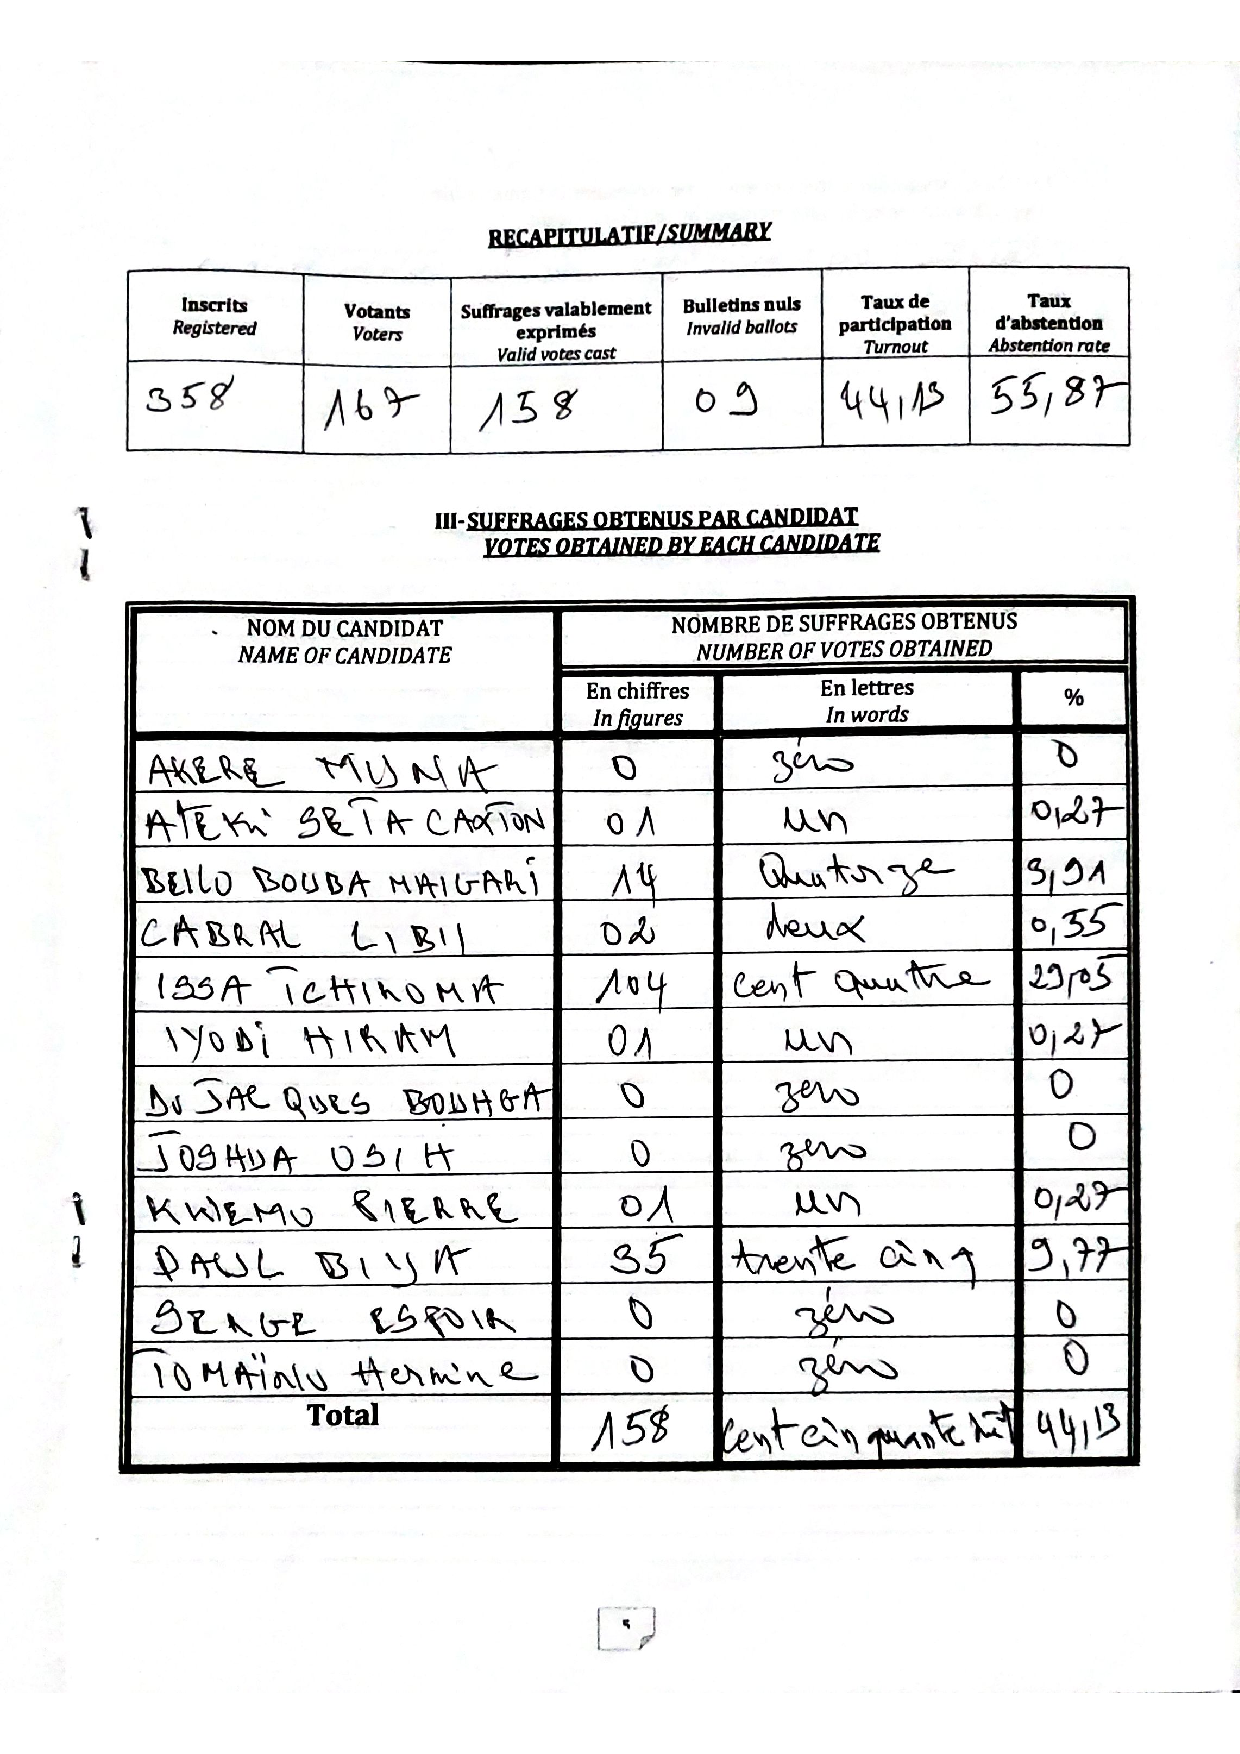 RECAPITULATIF/SUMMARY
Inscrits
Registered
Votants
Voters
Suffrages valablement
exprimés
Valid votes cast
Bulletins nuls
Invalid ballots
Taux de
participation
Turnout
Taux
d'abstention
Abstention rate
358 167 158 09 44,13 55,87
III-SUFFRAGES OBTENUS PAR CANDIDAT
VOTES OBTAINED BY EACH CANDIDATE
NOM DU CANDIDAT
NAME OF CANDIDATE
NOMBRE DE SUFFRAGES OBTENUS
NUMBER OF VOTES OBTAINED
En chiffres
In figures
En lettres
In words
%
AKERE MUNA 0 zéro 0
ATEKI SETA CAXTON 01 un 0,27
BELLO BOUBA MAIGARI 14 Quatorze 3,91
CABRAL LIBII 02 deux 0,55
ISSA TCHIROMA 104 cent quatre 29,05
IYODI HIRAM 01 un 0,27
Dr JACQUES BOUHGA 0 zero 0
JOSHUA OSIH 0 zero 0
KWEMO PIERRE 01 un 0,27
PAUL BIYA 35 trente cinq 9,77
SERGE ESPOIR 0 zéro 0
TOMAÏNO Hermine 0 zéro 0
Total 158 cent cinquante huit 44,13
5